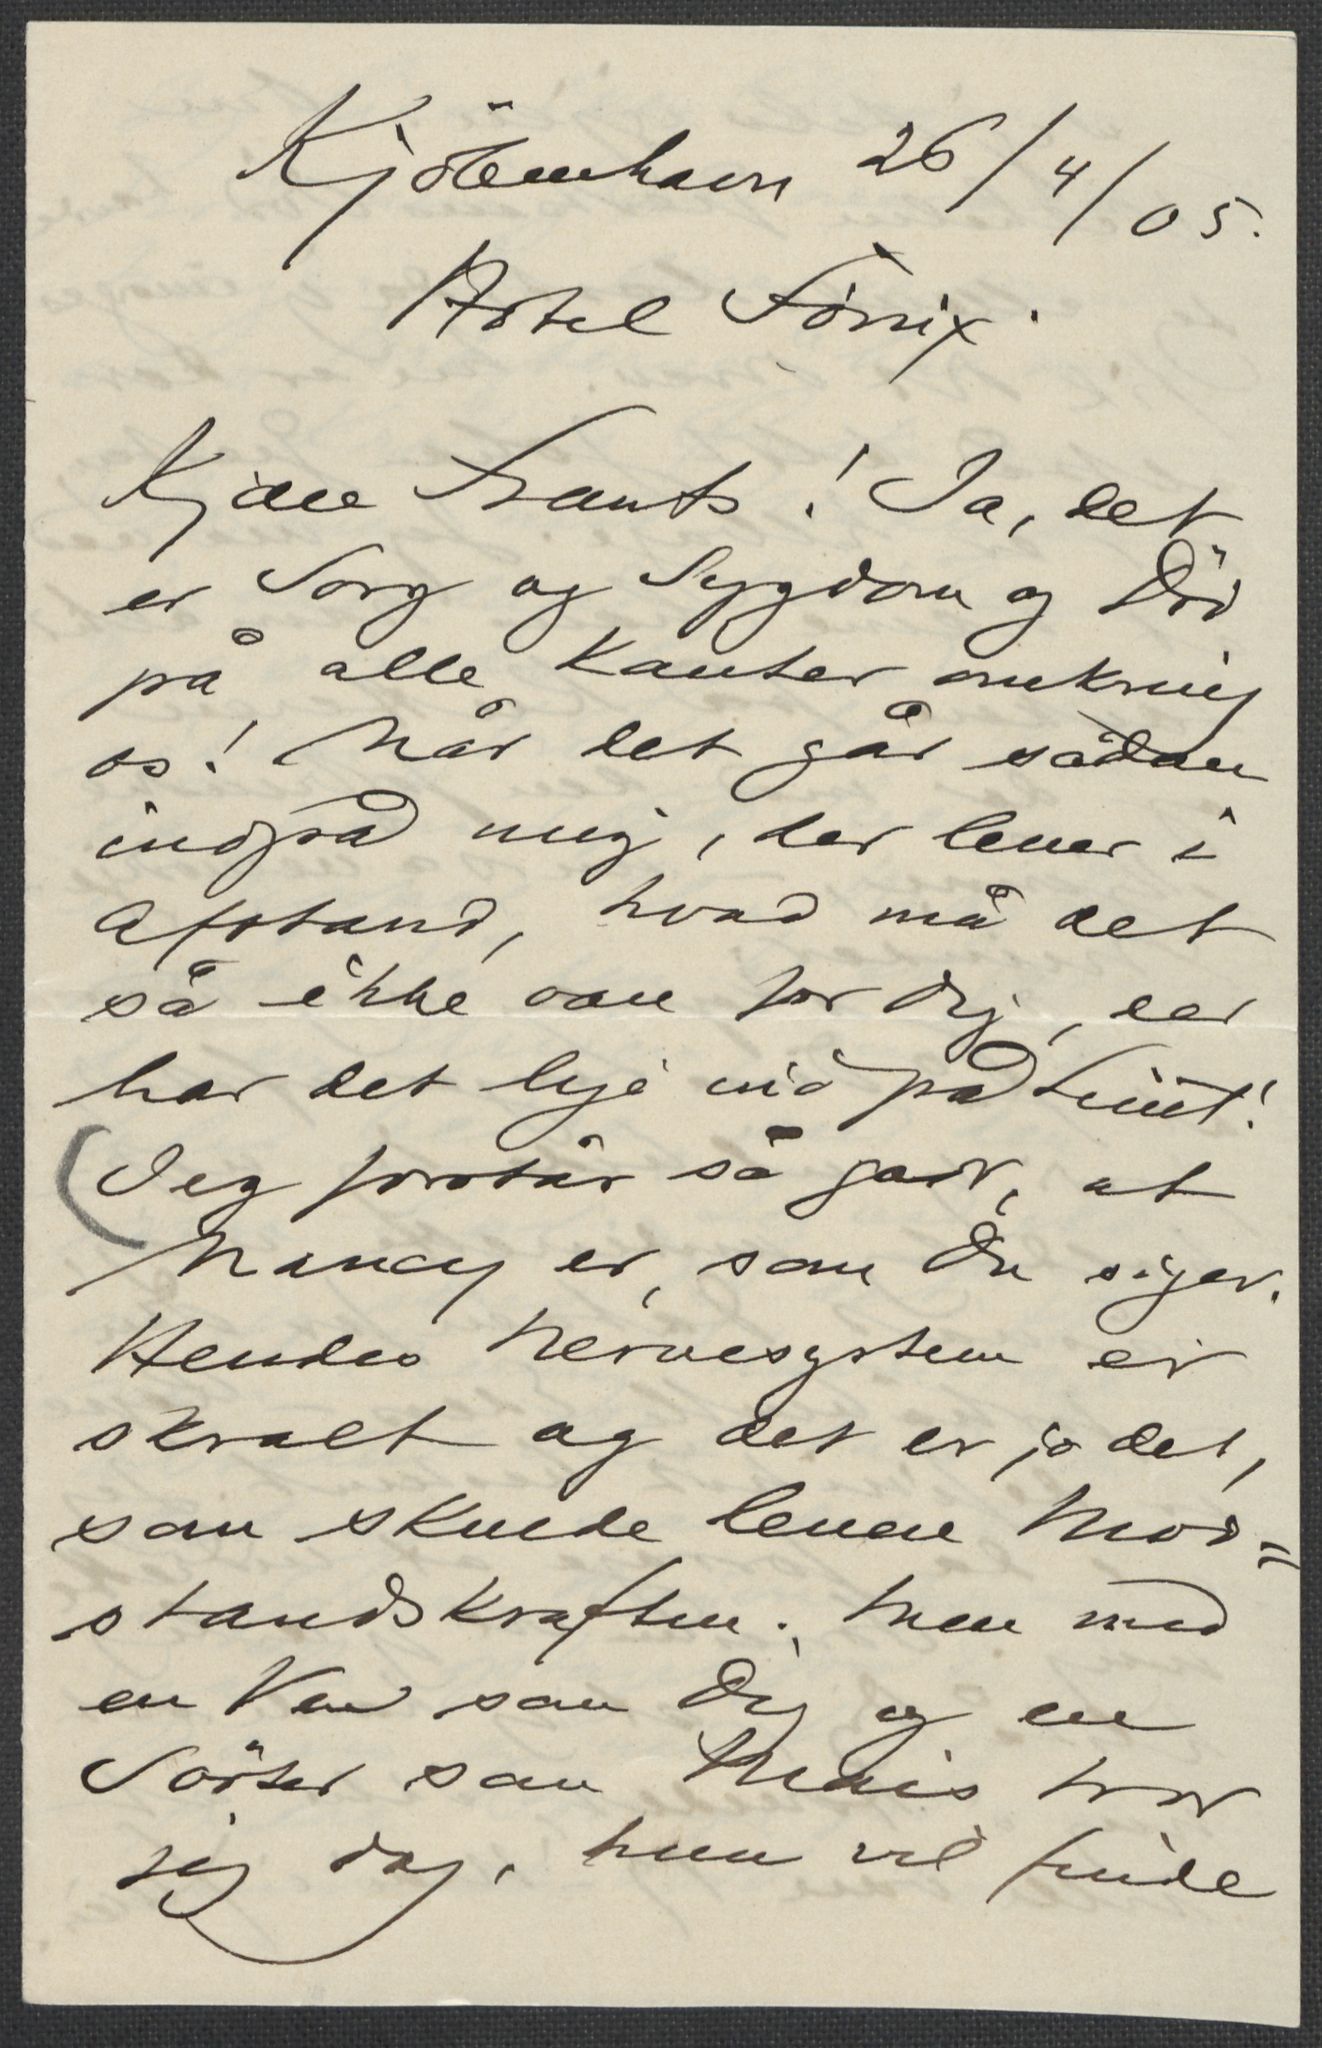 Kjöbenhavn 26/4/05.
Hotel Fönix.
Kjære Frants! Ja, det
er Sorg og Sygdom og Död
på alle Kanter omkring
os! Når det går sådan
indpå mig, der lever i
Afstand, hvad må det
så ikke være for dig, der
har det lige ind på Livet!
(Jeg forstår så godt, at
Nancy er, som Du siger.
Hendes Nervesystem er
skralt og det er jo det,
som skulde levere Mod=
standskraften. Men med
en Ven som Dig og en
Söster som Mais tror
jeg dog, hun vil finde